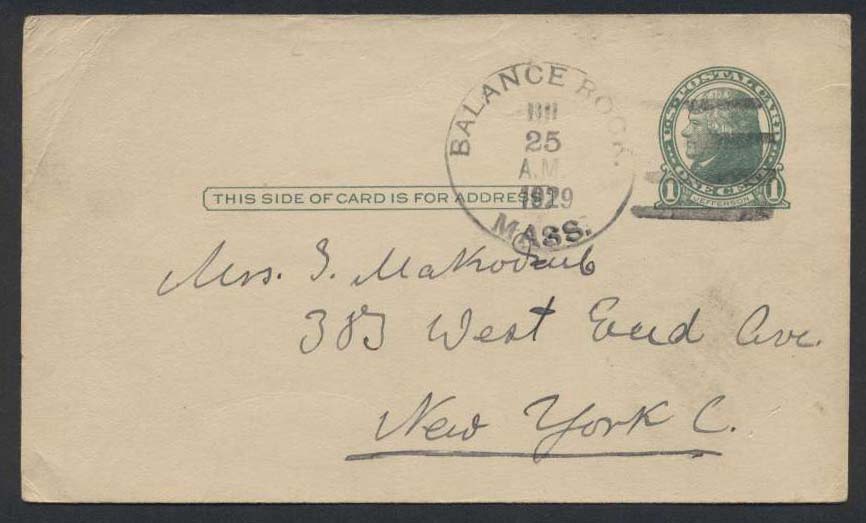 BALANCE ROCK.
25
A.M.
1929
MASS.
U.S. POSTAL CARD
1 ONE CENT 1
JEFFERSON
THIS SIDE OF CARD IS FOR ADDRESS
Mrs. I.
383 West End Ave.
New York C.